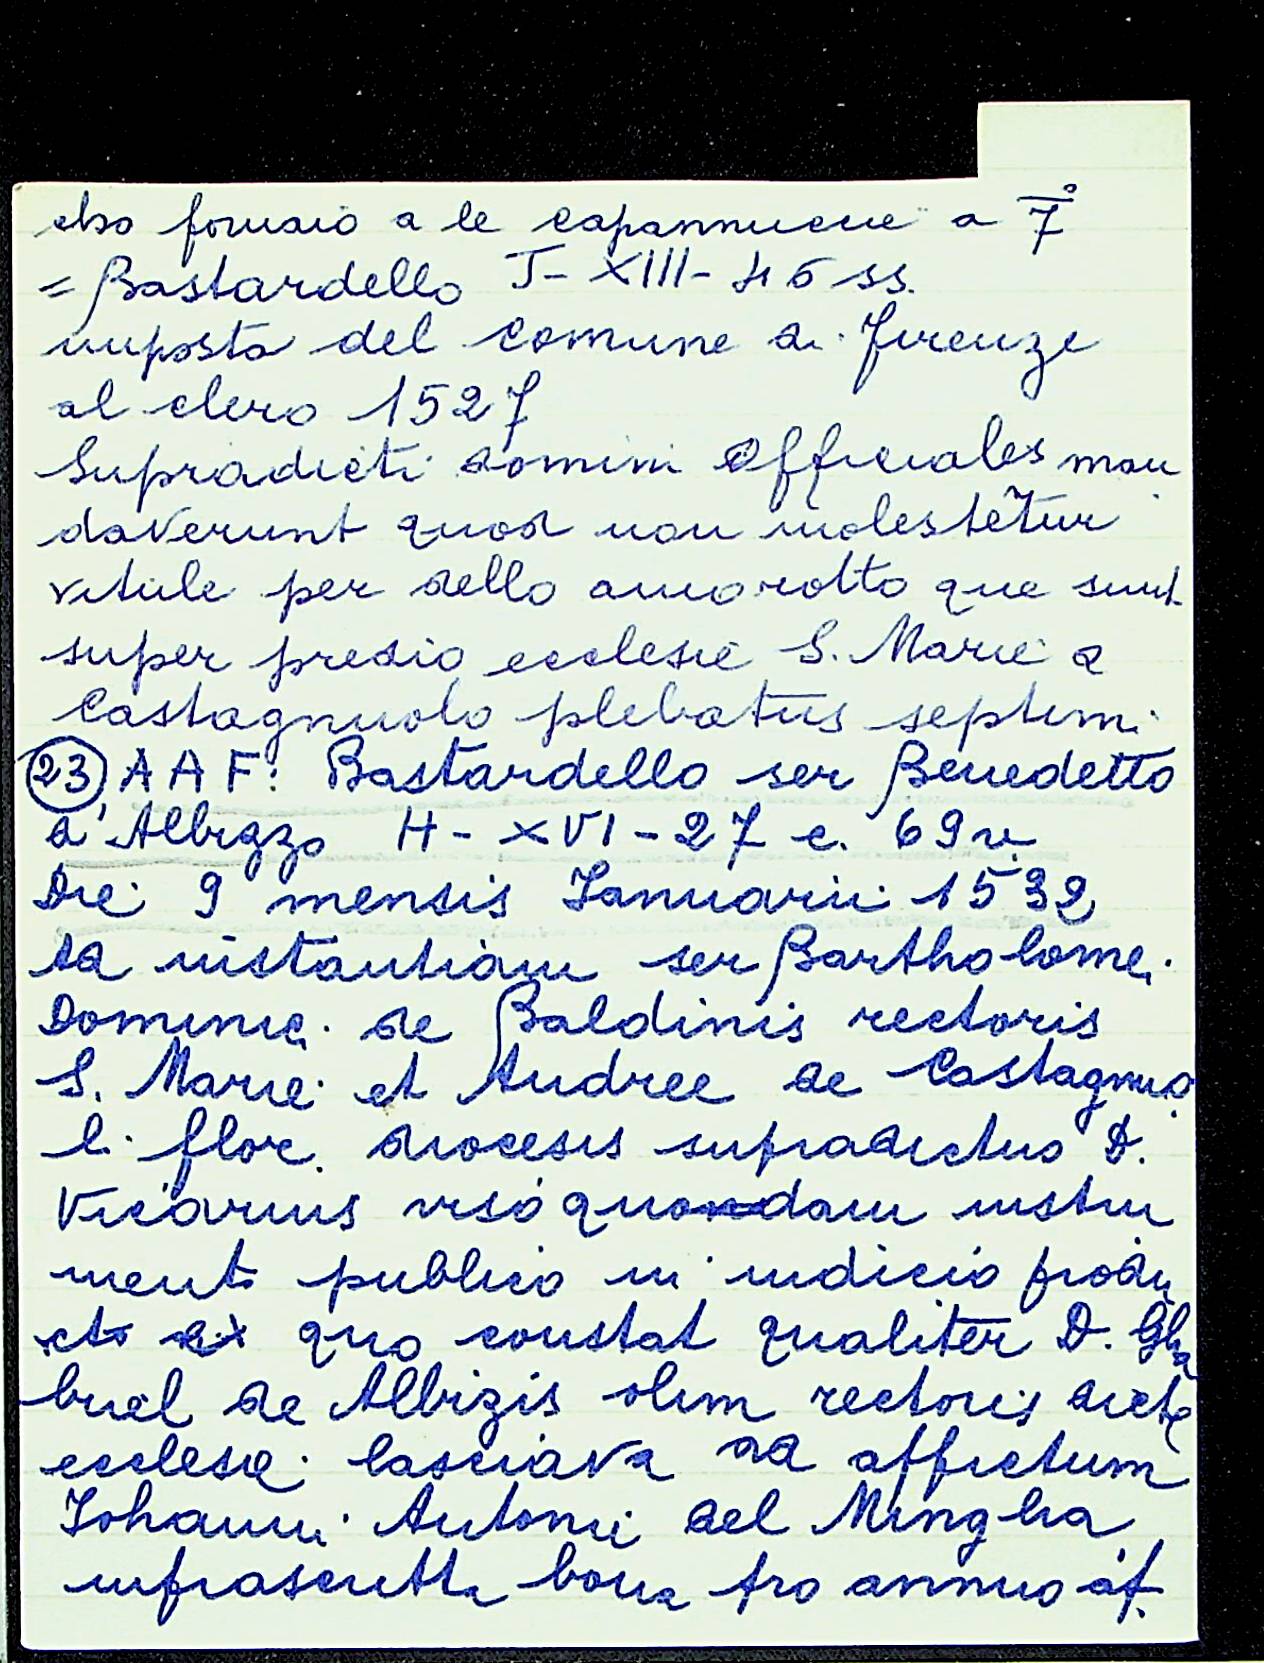 elso fornaio a le capannucce a 7°
= Bastardello J - XIII - 46 ss.
imposta del comune di Firenze
al clero 1527
Supradicti domini officiales man
daverunt quod non molestetur
vitule per dello amorotto que sunt
super predio ecclesie S. Marie a
Castagnuolo plebatus septimi
23) AAF: Bastardello ser Benedetto
d'Albizzo H - XVI - 27 c. 69v.
Die 9 mensis Ianuarii 1532
ad instantiam ser Bartholomei
Dominici de Baldinis rectoris
S. Marie et Andree de Castagnuo
li flor. diocesis supradictus D.
Vicarius viso quodam instru
mento publico in iudicio produ
cto ex quo constat qualiter D. Gha
briel de Albizis olim rectoris dicte
ecclesie lasciava ad affictum
Iohanni Antonii del Mingha
infrascritta bona pro annuo af.